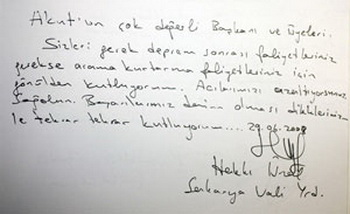 Akut'un çok değerli Başkanı ve Üyeleri.
Sizleri gerek deprem sonrası faliyetleriniz
gerekse arama kurtarma faliyetleriniz için
gönülden kutluyorum. Acılarımızı azaltıyorsunuz
Sağolun. Başarılarınız devamı olması dileklerimiz
le tekrar tekrar kutluyorum... 29.06.2008
Hakkı
Sakarya Vali Yrd.